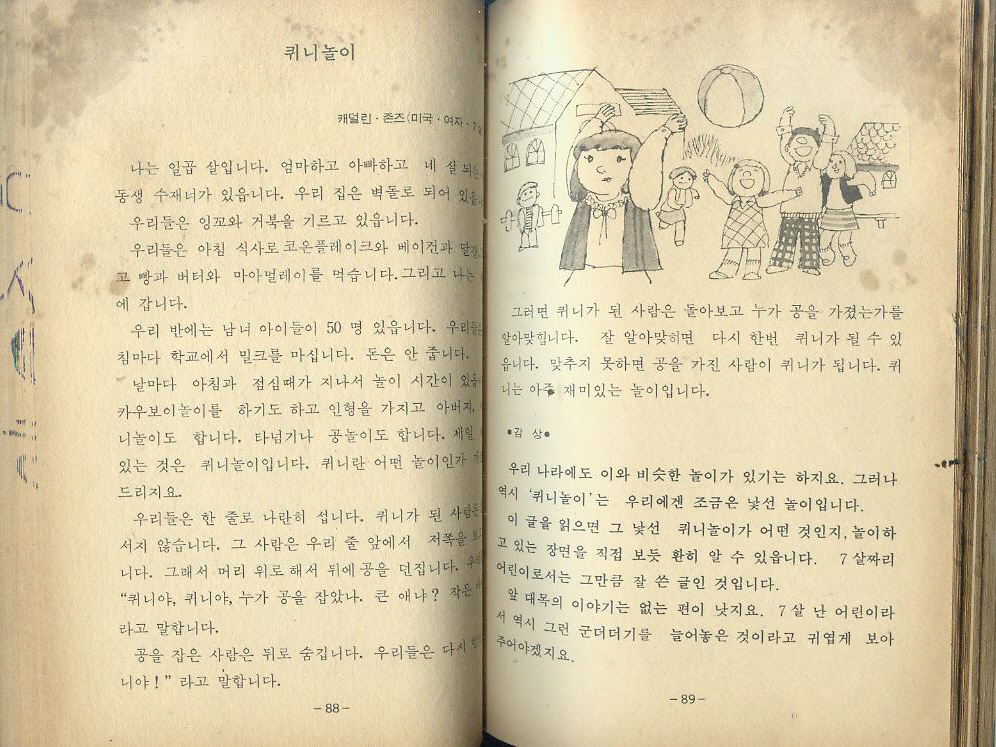 퀴니놀이
캐덜린·존즈(미국·여자·7살
나는 일곱 살입니다. 엄마하고 아빠하고 네 살
동생 수재너가 있읍니다. 우리 집은 벽돌로 되어
우리들은 잉꼬와 거북을 기르고 있읍니다.
우리들은 아침 식사로 코온플레이크와 베이컨과
고 빵과 버터와 마아멀레이를 먹습니다. 그리고 나는
에 갑니다.
우리 반에는 남녀 아이들이 50 명 있읍니다.
침마다 학교에서 밀크를 마십니다. 돈은 안 줍니다.
날마다 아침과 점심때가 지나서 놀이 시간이
카우보이놀이를 하기도 하고 인형을 가지고 아버지,
니놀이도 합니다. 타넘기나 공놀이도 합니다. 제일
있는 것은 퀴니놀이입니다. 퀴니란 어떤 놀이인가
드리지요.
우리들은 한 줄로 나란히 섭니다. 퀴니가 된 사람은
서지 않습니다. 그 사람은 우리 줄 앞에서 저쪽을
니다. 그래서 머리 위로 해서 뒤에 공을 던집니다.
“퀴니야, 퀴니야, 누가 공을 잡았나. 큰 애냐? 작은
라고 말합니다.
공을 잡은 사람은 뒤로 숨깁니다. 우리들은 다시
니야!” 라고 말합니다.
－88－
그러면 퀴니가 된 사람은 돌아보고 누가 공을 가졌는가를
알아맞힙니다. 잘 알아맞히면 다시 한번 퀴니가 될 수 있
읍니다. 맞추지 못하면 공을 가진 사람이 퀴니가 됩니다. 퀴
니는 아주 재미있는 놀이입니다.
●감 상●
우리 나라에도 이와 비슷한 놀이가 있기는 하지요. 그러나
역시 ‘퀴니놀이’는 우리에겐 조금은 낯선 놀이입니다.
이 글을 읽으면 그 낯선 퀴니놀이가 어떤 것인지, 놀이하
고 있는 장면을 직접 보듯 환히 알 수 있읍니다. 7 살짜리
어린이로서는 그만큼 잘 쓴 글인 것입니다.
앞 대목의 이야기는 없는 편이 낫지요. 7 살 난 어린이라
서 역시 그런 군더더기를 늘어놓은 것이라고 귀엽게 보아
주어야겠지요.
－89－